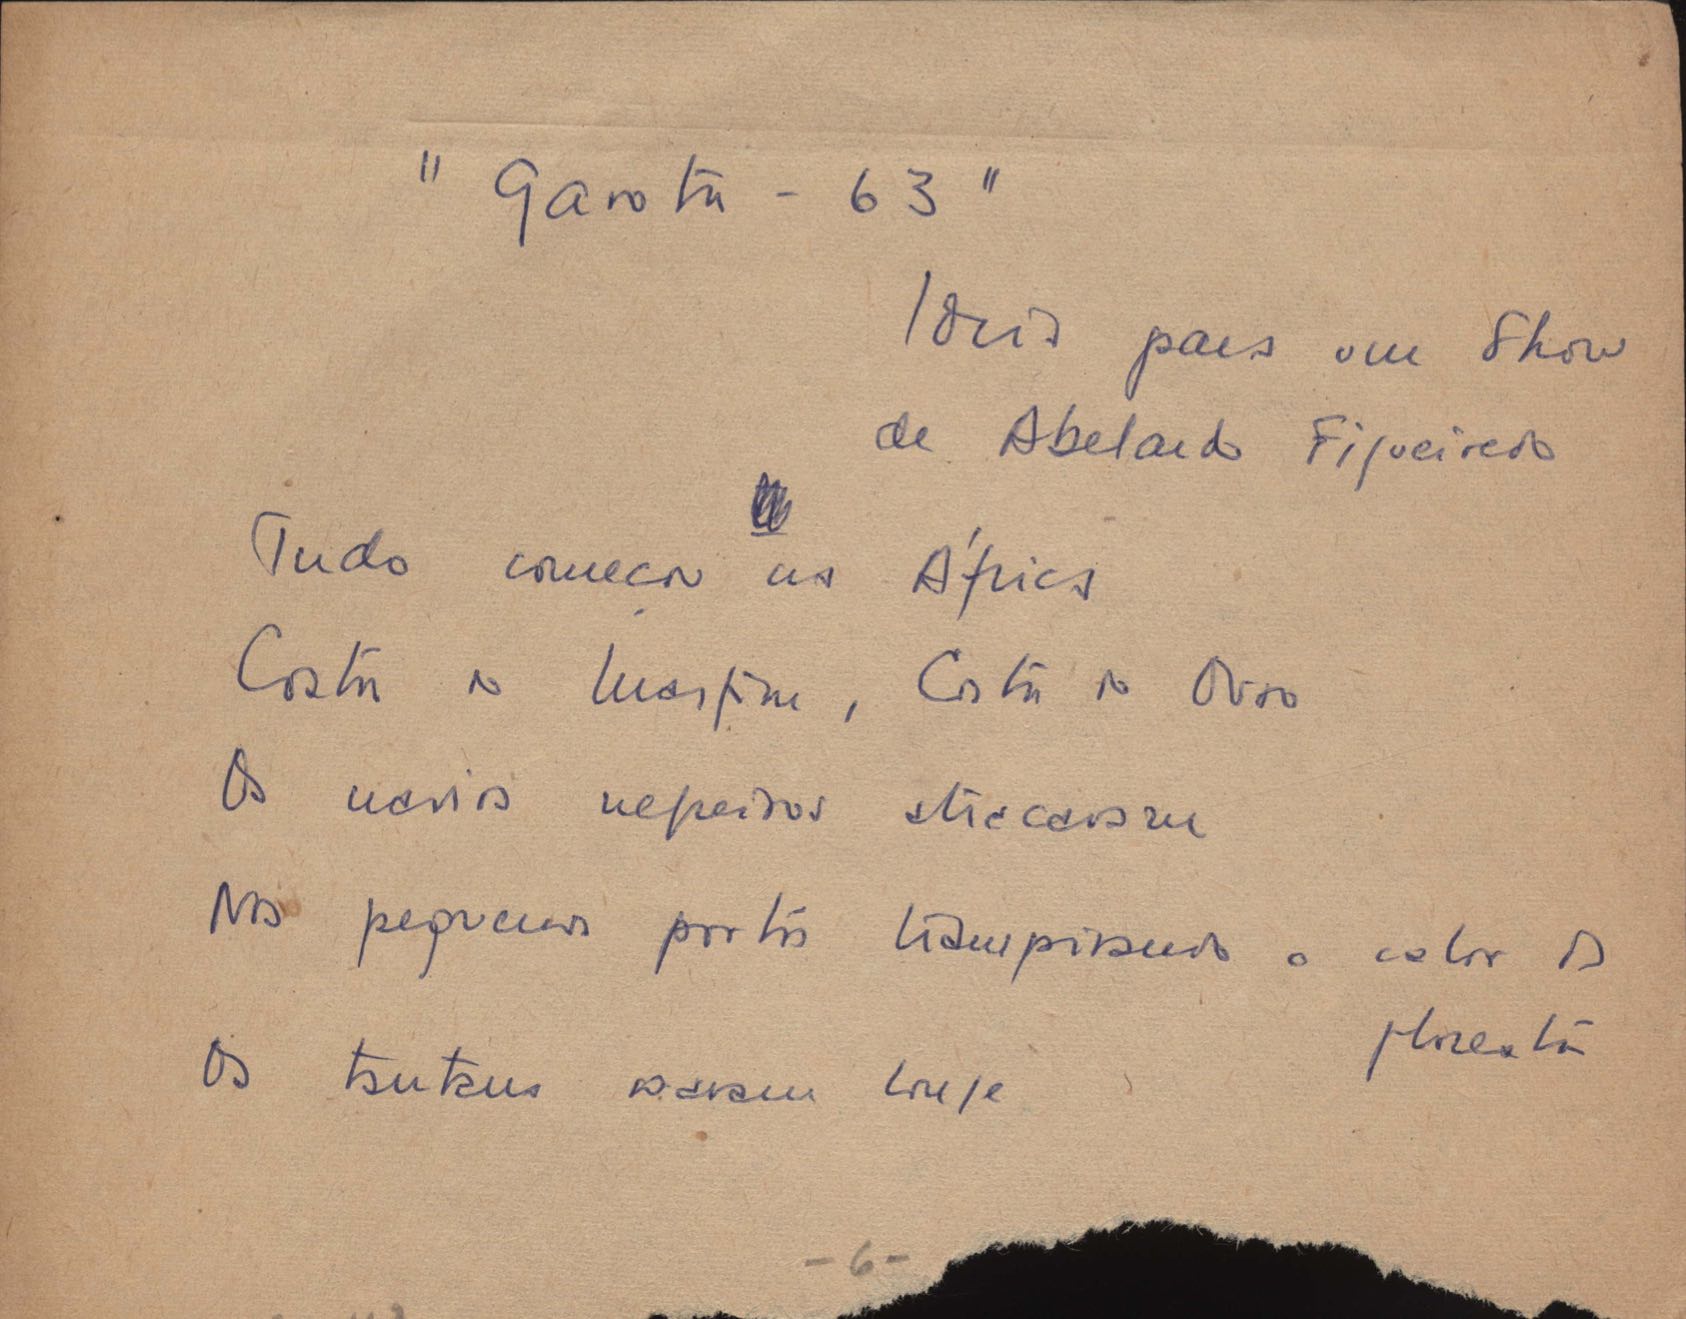 " Garota - 63 "
Ideia para um Show
de Abelardo Figueiredo
Tudo começou na África
Costa do Marfim, Costa do Ouro
Os navios negreiros atracavam
Nos pequenos portos transpirando o calor da
floresta
Os tantans soavam longe
- 6 -